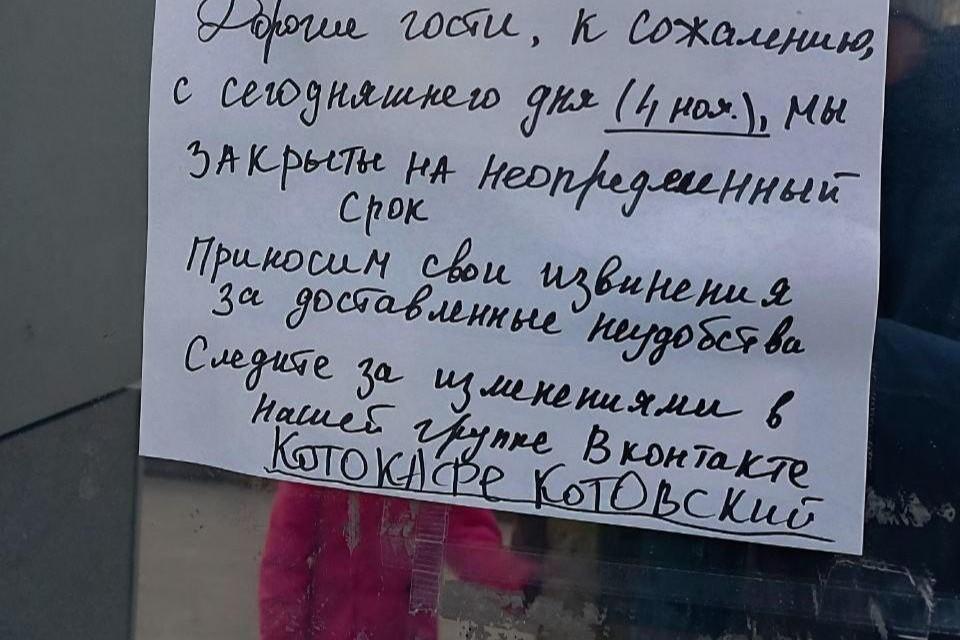 Дорогие гости, к сожалению,
с сегодняшнего дня (4 ноя.), мы
закрыты на неопределенный
срок
Приносим свои извинения
за доставленные неудобства
Следите за изменениями в
нашей группе Вконтакте
КОТОКАФЕ КОТОВСКИЙ